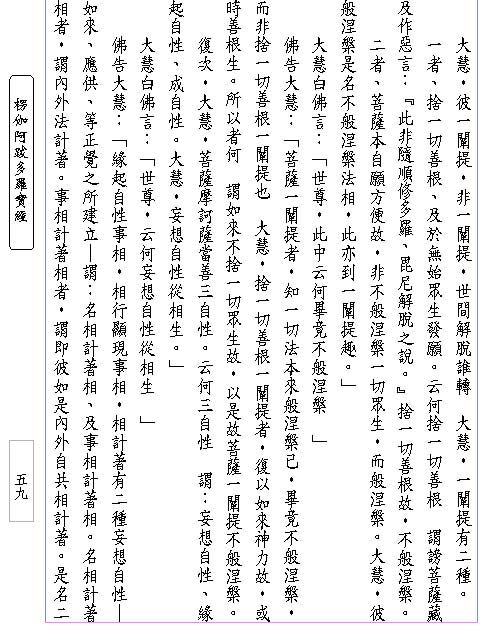 大慧，彼一闡提，非一闡提，世間解脫誰轉　大慧，一闡提有二種。
一者、捨一切善根、及於無始眾生發願。云何捨一切善根　謂謗菩薩藏
及作惡言：『此非隨順修多羅、毘尼解脫之說。』捨一切善根故，不般涅槃。
二者、菩薩本自願方便故，非不般涅槃一切眾生，而般涅槃。大慧，彼
般涅槃是名不般涅槃法相，此亦到一闡提趣。」
大慧白佛言：「世尊，此中云何畢竟不般涅槃　」
佛告大慧：「菩薩一闡提者，知一切法本來般涅槃已，畢竟不般涅槃，
而非捨一切善根一闡提也　大慧，捨一切善根一闡提者，復以如來神力故，或
時善根生。所以者何　謂如來不捨一切眾生故，以是故菩薩一闡提不般涅槃。
復次，大慧，菩薩摩訶薩當善三自性。云何三自性　謂：妄想自性、緣
起自性、成自性。大慧，妄想自性從相生。」
大慧白佛言：「世尊，云何妄想自性從相生　」
佛告大慧：「緣起自性事相，相行顯現事相，相計著有二種妄想自性—
如來、應供、等正覺之所建立—謂：名相計著相、及事相計著相。名相計著
相者，謂內外法計著。事相計著相者，謂即彼如是內外自共相計著。是名二
楞伽阿跋多羅寶經
五九